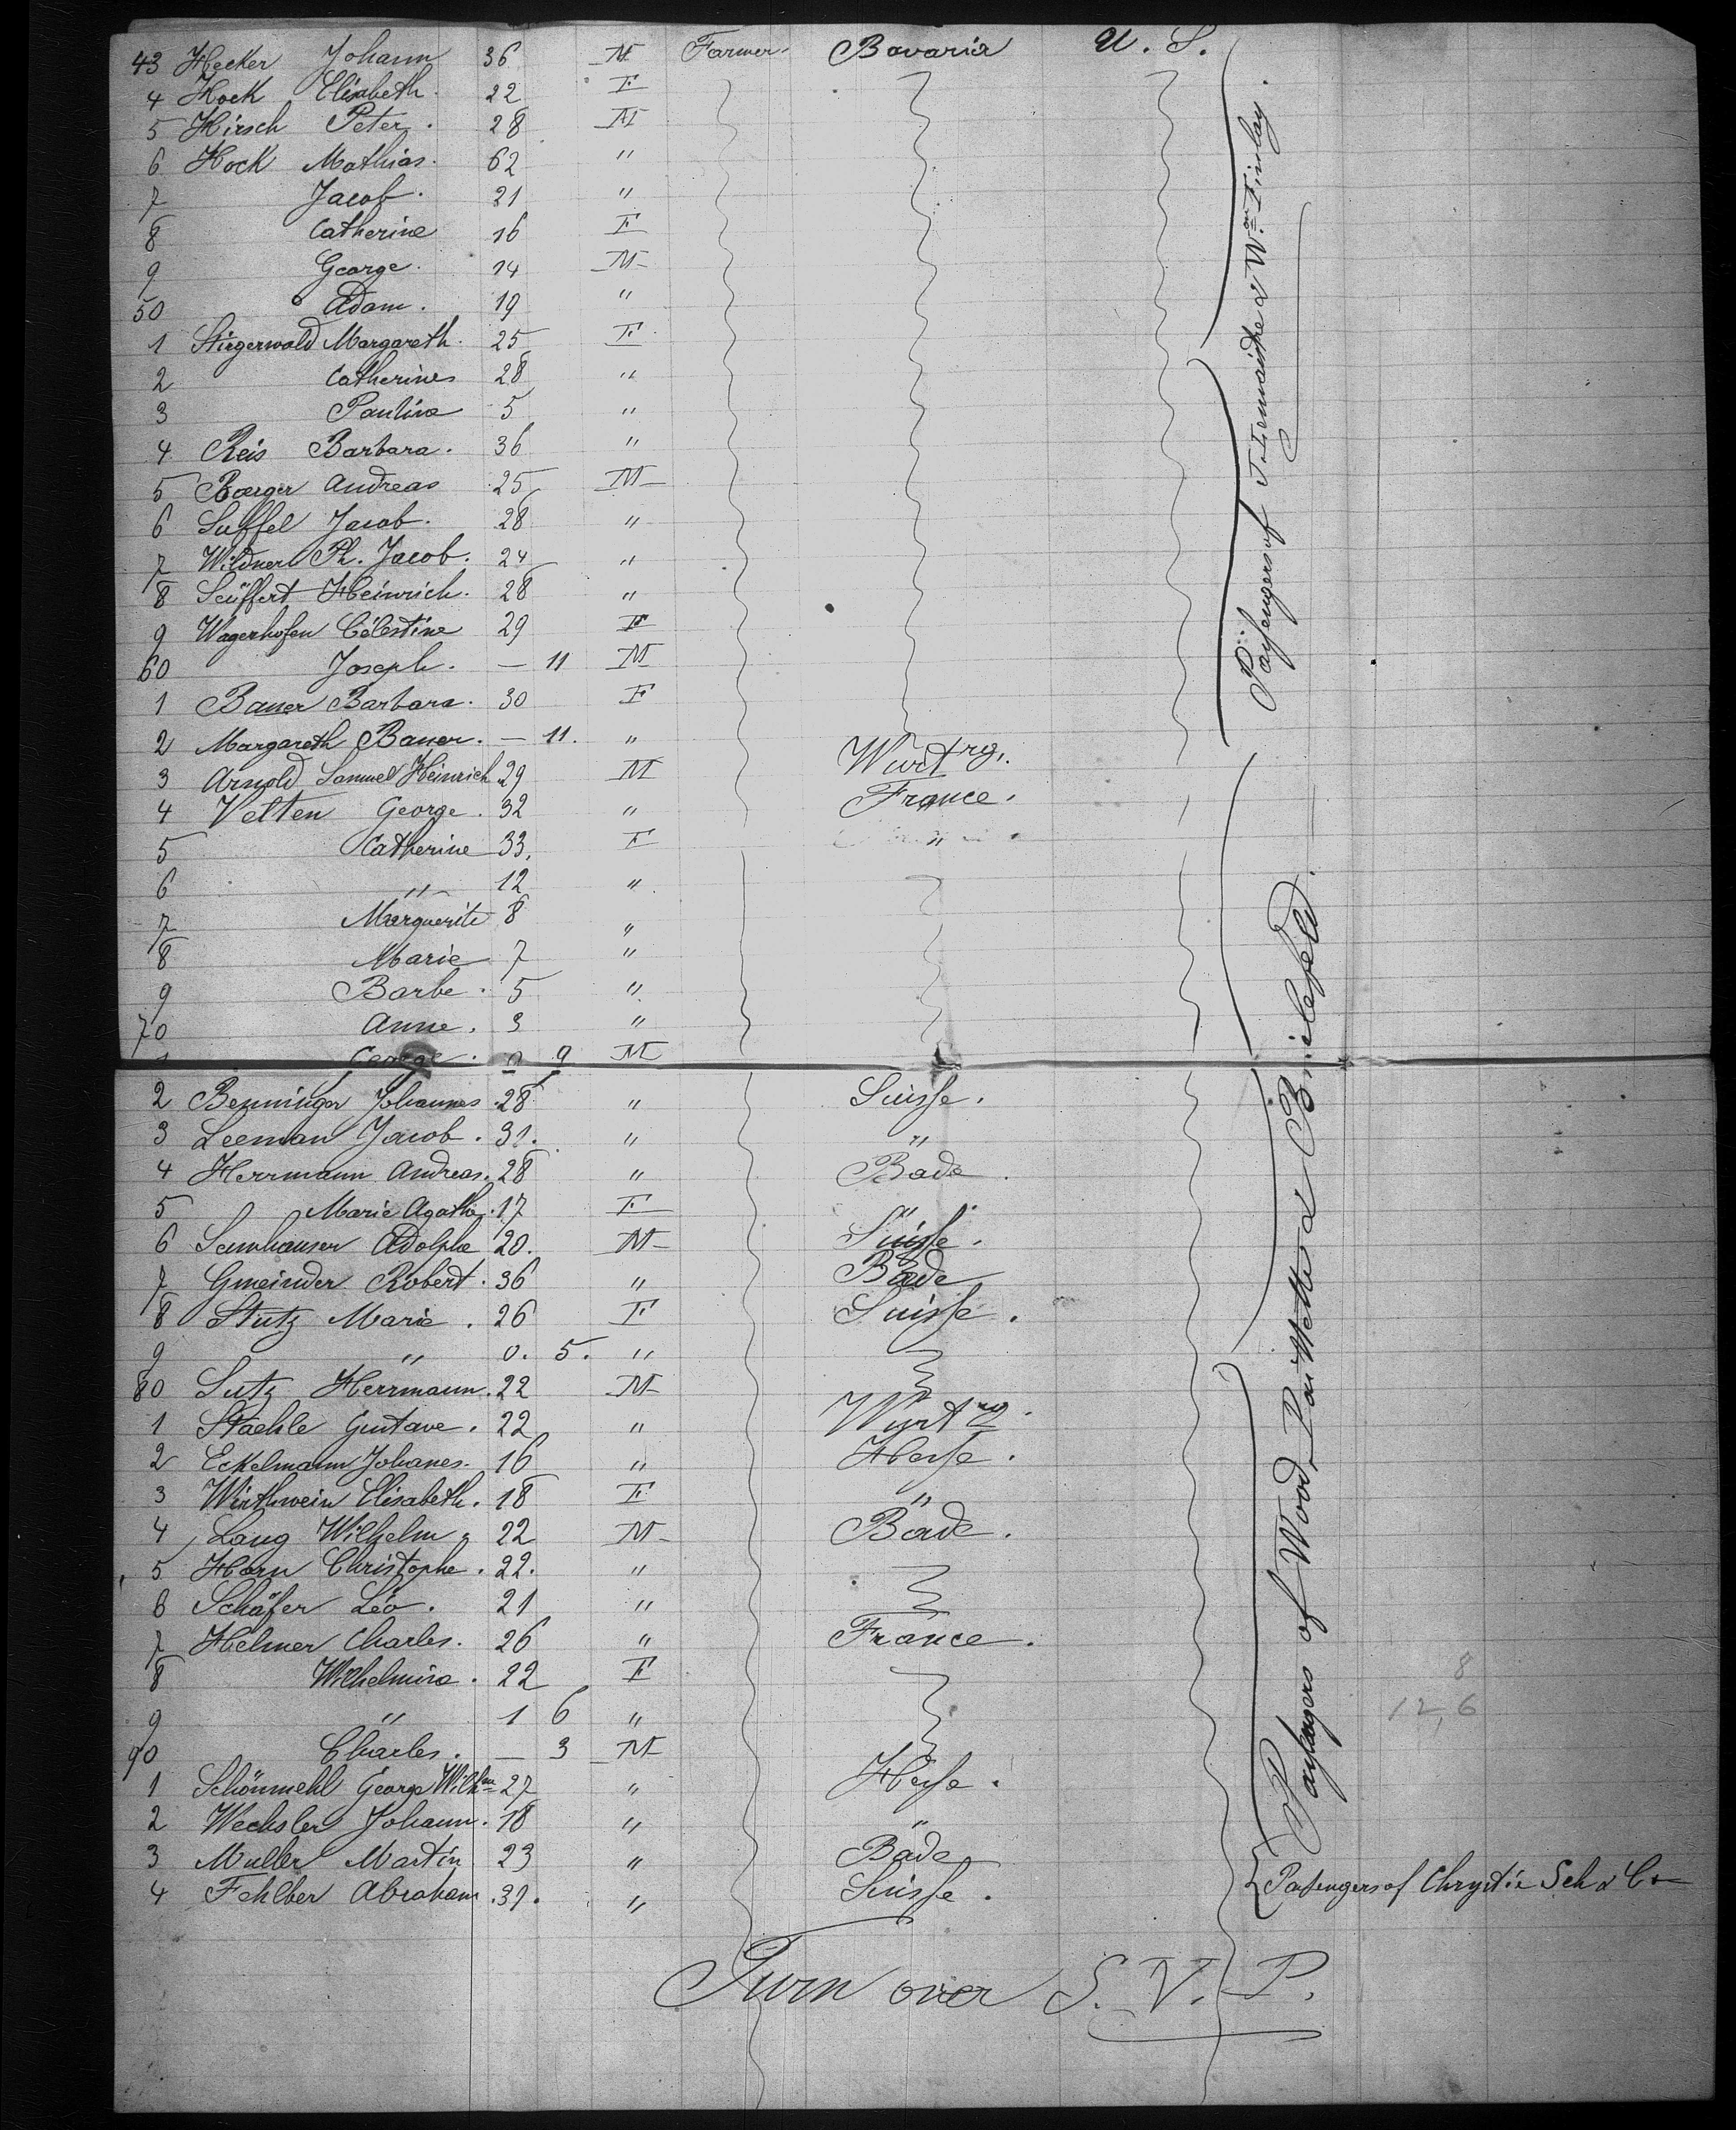 43 Hecker Johann 36 M Farmer Bavaria U. S.
4 Hock Elisabeth. 22 F
5 Hirsch Peter. 28 M
6 Hock Mathias. 62 "
7 Jacob. 21 "
8 Catherine 16 F
9 George. 14 M
50 Adam. 19 "
1 Stirgerwald Margareth. 25 F
2 Catherines 28 "
3 Pauline 5 "
4 Reis Barbara. 36 "
5 Boerger Andreas 25 M
6 Suffel Jacob. 28 "
7 Wildner Ph. Jacob. 24 "
8 Seüffert Heinrich. 28 "
9 Wagerhofen Célestine 29 F
60 Joseph. — 11 M
1 Bauer Barbara. 30 F
2 Margareth Bauer. — 11. "
3 Arnold Samuel Heinrich 29 M Wurtrg.
4 Velten George. 32 " France.
5 Catherine 33. F "
6 " 12 "
7 Marguerite 8 "
8 Marie 7 "
9 Barbe. 5 "
70 Anne. 3 "
George. 0 9 M
2 Benninger Johannes. 28 " Suisse.
3 Leeman Jacob. 31. " "
4 Herrmann Andreas. 28 " Bade.
5 Marie Agathe. 17 F "
6 Samhauser Adolphe 20. M Suisse.
7 Gmeinder Robert. 36 " Bade
8 Stutz Marie. 26 F Suisse.
9 " 0. 5. "
80 Sutz Herrmann. 22 M
1 Staehle Gustave. 22 " Wurtrg.
2 Eckelmann Johanes. 16 " Hesse.
3 Wirthwein Elisabeth. 18 F "
4 Lang Wilhelm. 22 M Bade.
5 Horn Christophe. 22. "
6 Schäfer Léo. 21 "
7 Helmer Charles. 26 " France.
8 Wilhelmine. 22 F
9 " 1 6 "
90 Charles. — 3 M
1 Schönmehl George Wilhm 27 " Hesse.
2 Wechsler Johann. 18 " "
3 Muller Martin 23 " Bade
4 Fehlber Abraham. 39. " Suisse.
Pasengers of & Wm Finlay.
Passengers of Wood &
8
12,6
Pasengers of Chrystie Sch & Co
Turn over S. V. P.